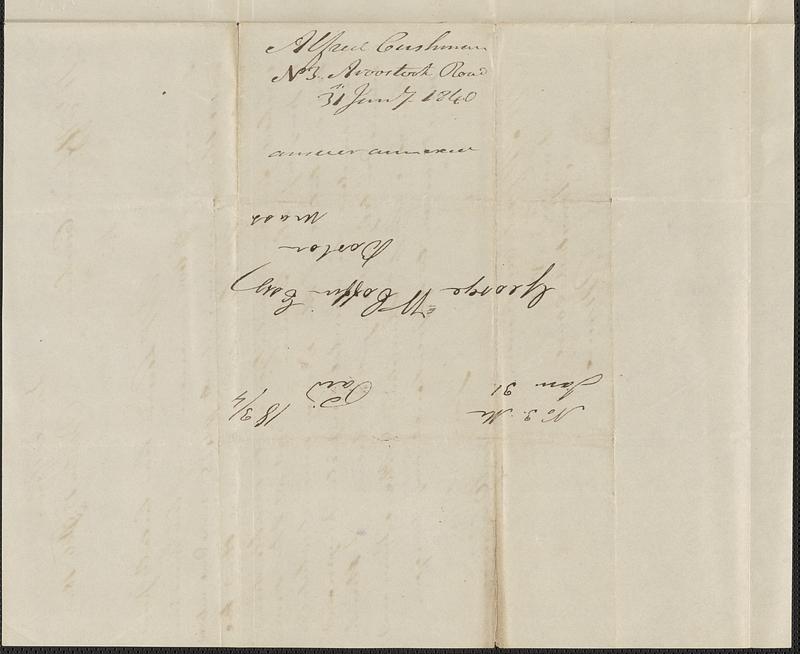 Alfred Cushman
No 3. Aroostook Road
31 Jany 1840
answer annexed
No 3. Me
Jan 31.
Paid
18 3/4
George W Coffin Esq
Boston
Mass